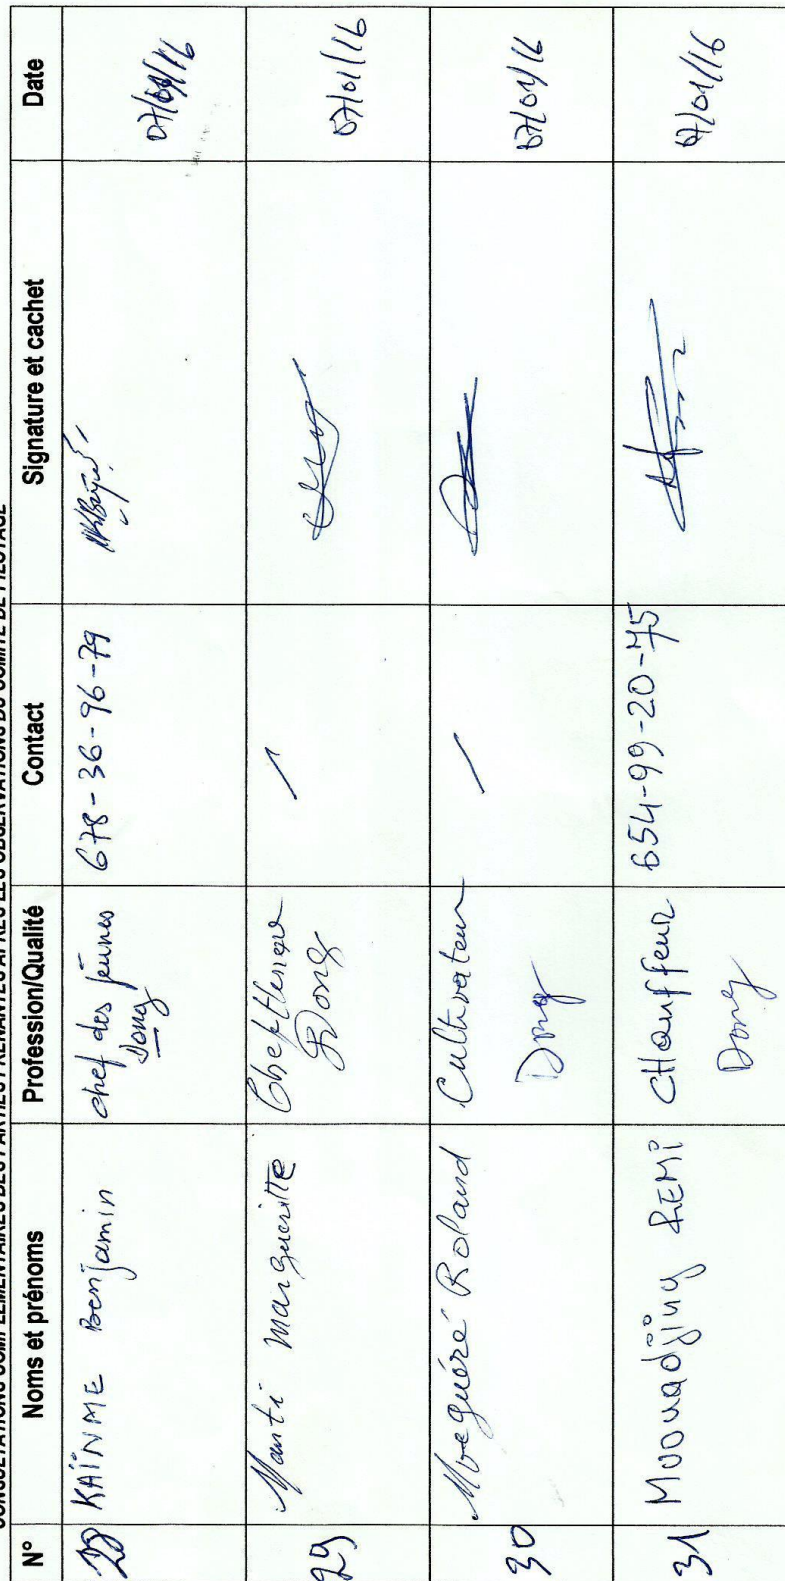 CONSULTATIONS COMPLEMENTAIRES DES PARTIES PRENANTES APRES LES OBSERVATIONS DU COMITE DE PILOTAGE
N° Noms et prénoms Profession/Qualité Contact Signature et cachet Date
28 KAÏNME Benjamin chef des jeunes 678-36-96-79 07/01/16
Dong
29 Manti Margueritte Dong / 07/01/16
30 Mveguéré Roland Cultivateur / 07/01/16
Dong
31 Mvouadjing REMi CHauffeur 654-99-20-75 07/01/16
Dong